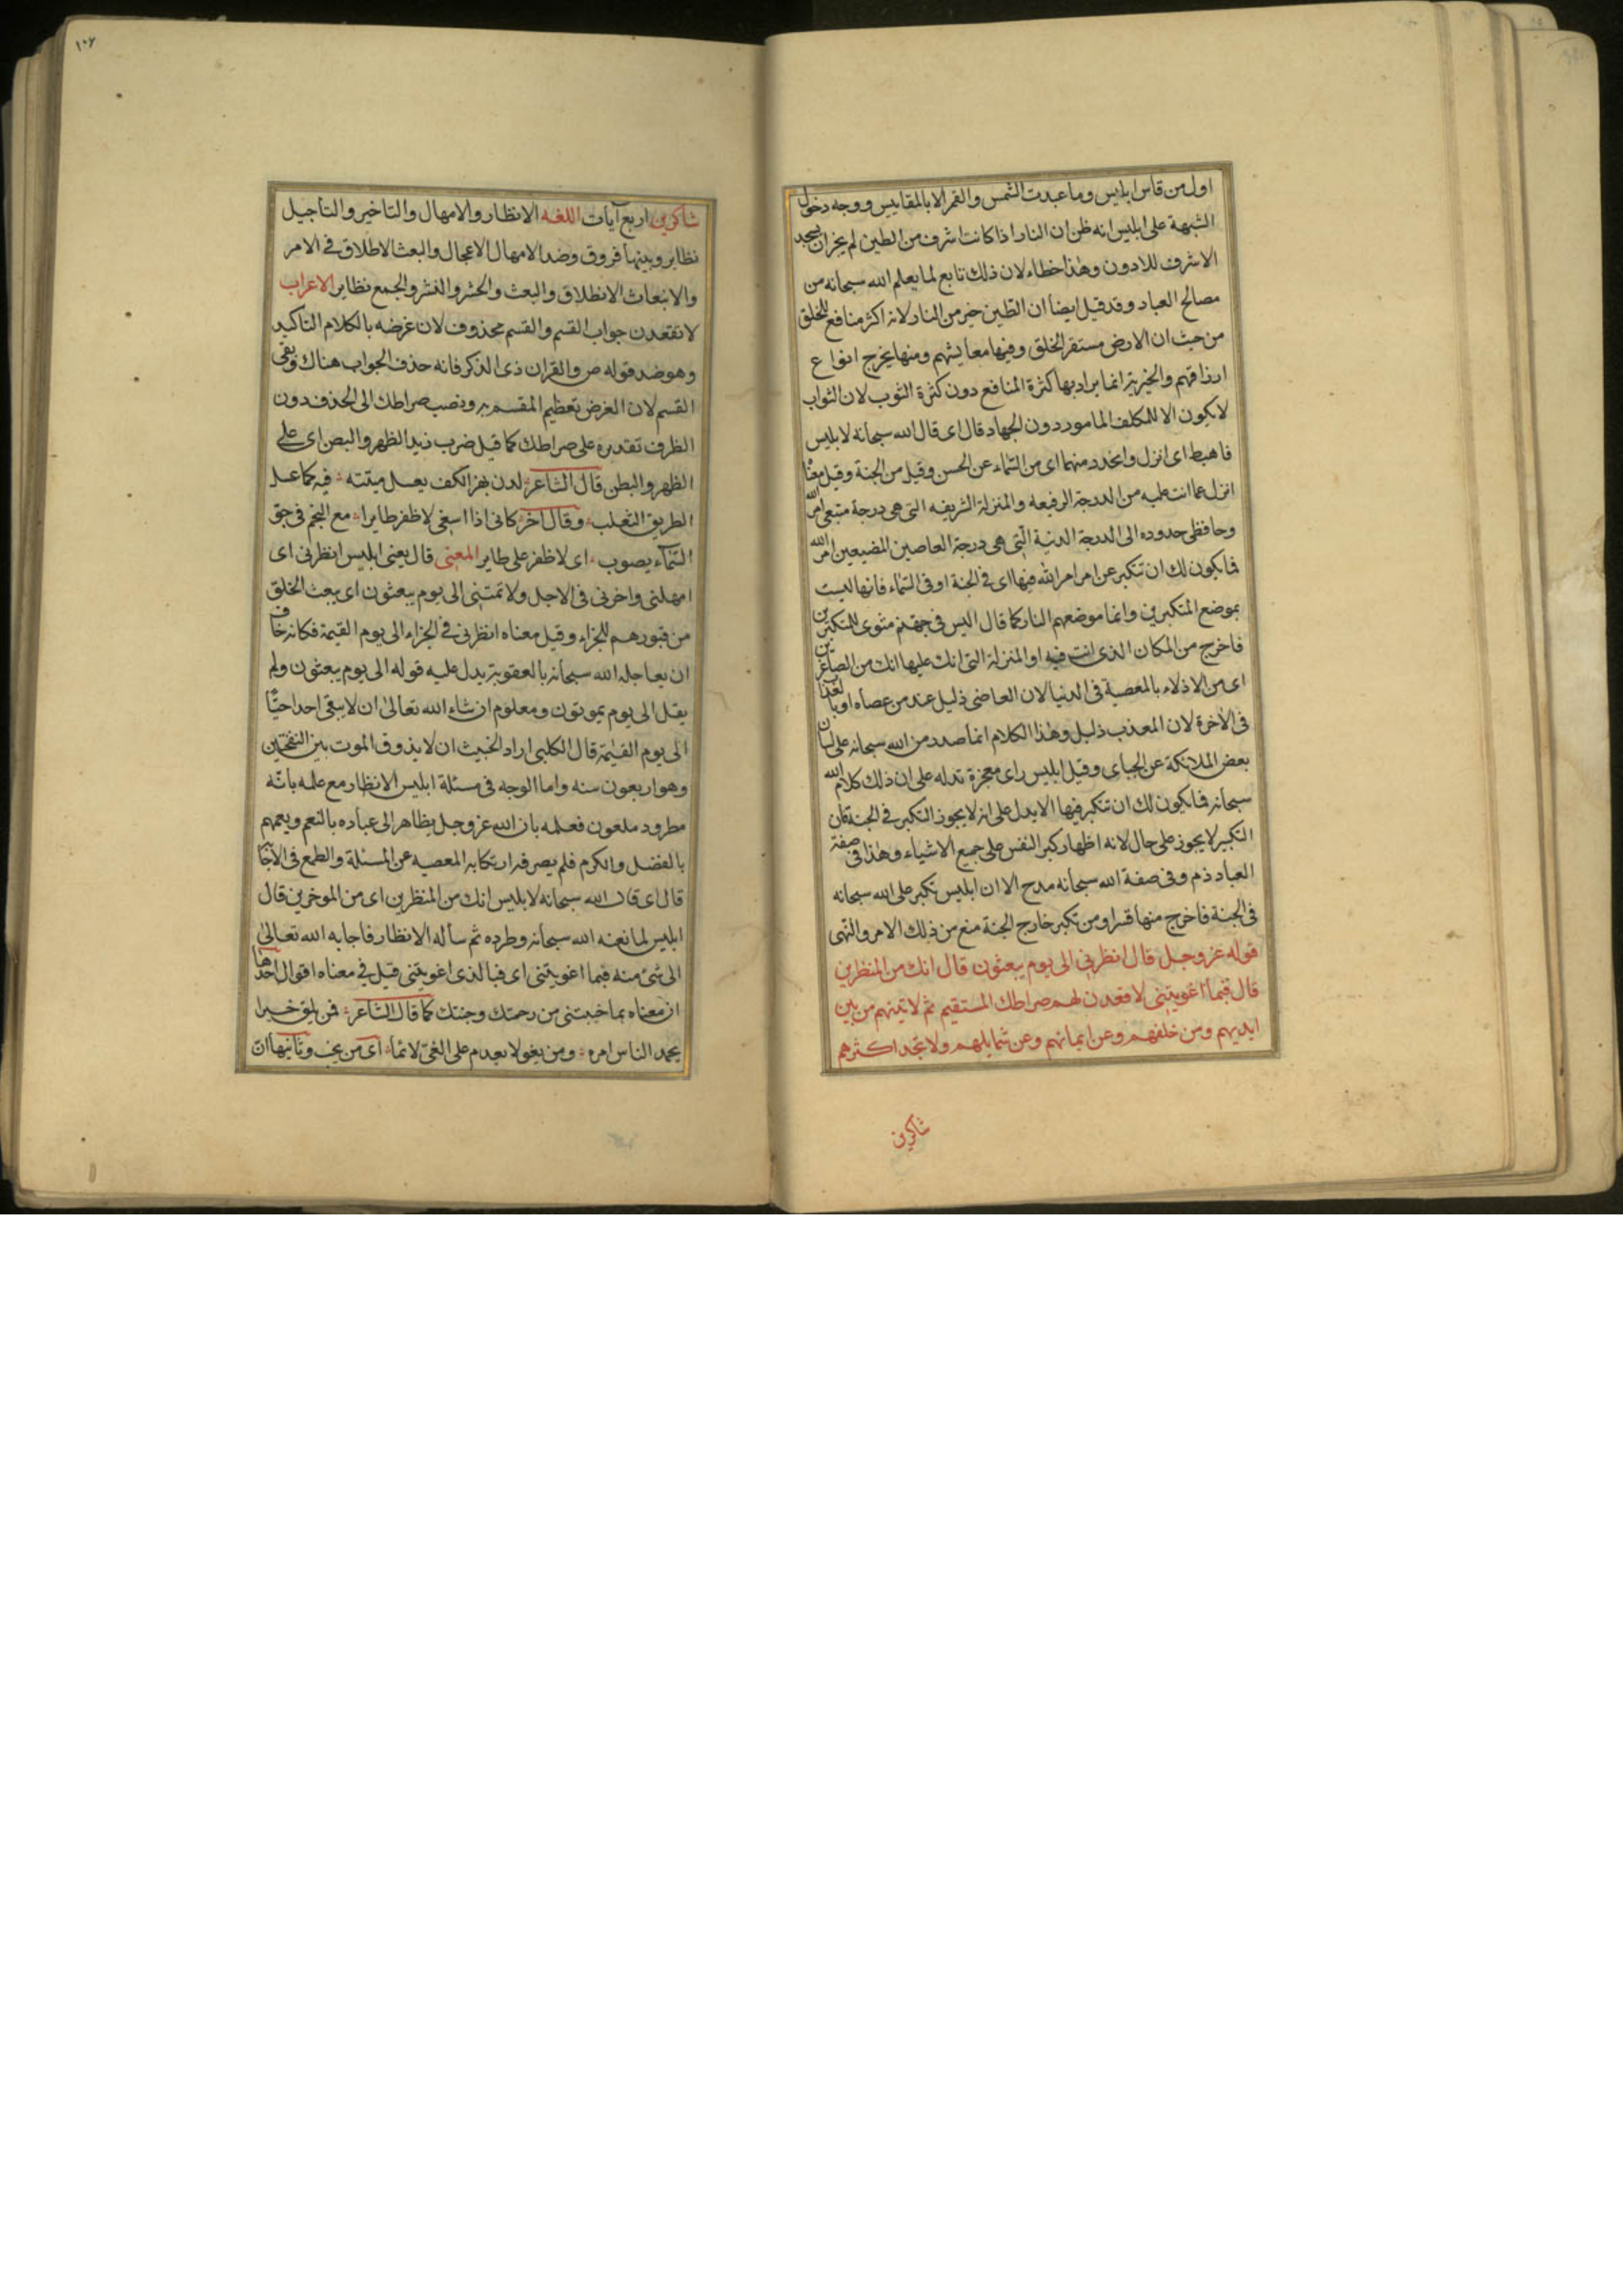 اول من قاس ابليس وما عبدت الشمس والقمر الا بالمقاييس ووجه دخول
الشبهة على ابليس انه ظن ان النار اذا كانت اشرف من الطين لم يجز ان يسجد
الاشرف للادون وهذا خطاء لان ذلك تابع لما يعلم الله سبحانه من
مصالح العباد وقد قيل ايضا ان الطين خير من النار لانه اكثر منافع للخلق
من حيث ان الارض مستقر الخلق وفيها معايشهم ومنها يخرج انواع
ارزاقهم والخيرية انما يراد بها كثرة المنافع دون كثرة الثوب لان الثواب
لا يكون الا للمكلف المامور دون الجهاد قال اى قال الله سبحانه لابليس
فاهبط اى انزل وانحدر منها اى من السماء عن الحسن وقيل من الجنة وقيل معناه
انزل عما انت عليه من الدرجة الرفيعه والمنزلة الشريفه التى هى درجة متبعى امر الله
وحافظى حدوده الى الدرجة الدنية التى هى درجة العاصين المضيعين امر الله
فما يكون لك ان تتكبر عن امر امر الله فيها اى فى الجنة او فى السماء فانها ليست
بموضع المتكبرين وانما موضعهم النار كما قال اليس فى جهنم مثوى للمتكبرين
فاخرج من المكان الذى انت فيه او المنزلة التى انك عليها انك من الصاغرين
اى من الاذلاء بالمعصية فى الدنيا لان العاصى ذليل عند من عصاه او بالعذاب
فى الآخرة لان المعذب ذليل وهذا الكلام انما صدر من الله سبحانه على لسان
بعض الملائكة عن الجباى وقيل ابليس راى معجزة تدله على ان ذلك كلام الله
سبحانه فما يكون لك ان تتكبر فيها الا يدل على انه لا يجوز التكبر فى الجنة فان
التكبر لا يجوز على حال لانه اظهار كبر النفس على جميع الاشياء وهذا فى صفة
العباد ذم وفى صفة الله سبحانه مدح الا ان ابليس تكبر على الله سبحانه
فى الجنة فاخرج منها قسرا ومن تكبر خارج الجنة منع من ذلك الامر والنهى
قوله عز وجل قال انظرنى الى يوم يبعثون قال انك من المنظرين
قال فبما اغويتنى لاقعدن لهم صراطك المستقيم ثم لاتينهم من بين
ايديهم ومن خلفهم وعن ايمانهم وعن شمايلهم ولا تجد اكثرهم
شاكرين
١٠٧
شاكرين اربع آيات اللغه الانظار والامهال والتاخير والتاجيل
نظاير وبينها فروق وضد الامهال الاعجال والبعث الاطلاق فى الامر
والانبعاث الانطلاق والبعث والحشر والنشر والجمع نظاير الاعراب
لاقعدن جواب القسم والقسم محذوف لان غرضه بالكلام التاكيد
وهو ضد قوله ص والقران ذى الذكر فانه حذف الجواب هناك وبقى
القسم لان الغرض تعظيم المقسم به ونصب صراطك الى الحذف دون
الظرف تقديره على صراطك كما قيل ضرب زيد الظهر والبصن اى على
الظهر والبطن قال الشاعر لدن بهز الكف يعسل ميتته فيه كما عسل
الطريق الثعلب وقال آخر كانى اذا اسعى لاظفر طايرا مع النجم فى جو
السماء يصوب اى لاظفر على طاير المعنى قال يعنى ابليس انظرنى اى
امهلنى واخرنى فى الاجل ولا تمتنى الى يوم يبعثون اى يبعث الخلق
من قبورهم للجزاء وقيل معناه انظرنى فى الجزاء الى يوم القيمة فكانه خاف
ان يعاجله الله سبحانه بالعقوبة يدل عليه قوله الى يوم يبعثون ولم
يقل الى يوم يموتون ومعلوم ان شاء الله تعالى ان لا يبقى احدا حيّا
الى يوم القيمة قال الكلبى اراد الخبيث ان لا يذوق الموت بين النفختين
وهو اربعون سنه واما الوجه فى مسئلة ابليس الانظار مع علمه بانّه
مطرود ملعون فعلمه بان الله عز وجل يظاهر الى عباده بالنعم ويعمهم
بالفضل والكرم فلم يصرفه ارتكابه المعصيه عن المسئلة والطمع فى الاجابة
قال اى قال الله سبحانه لابليس انك من المنظرين اى من الموخرين قال
ابليس لما لعنه الله سبحانه وطرده ثم ساله الانظار فاجابه الله تعالى
الى شئ منه فبما اغويتنى اى فبالذى اغويتنى قيل فى معناه اقوال احدها
ان معناه بما خيبتنى من رحمتك وجنتك كما قال الشاعر فمن يلق خيرا
يحمد الناس امره ومن يغو لا يعدم على الغىّ لائما اى من يخب وثانيها ان